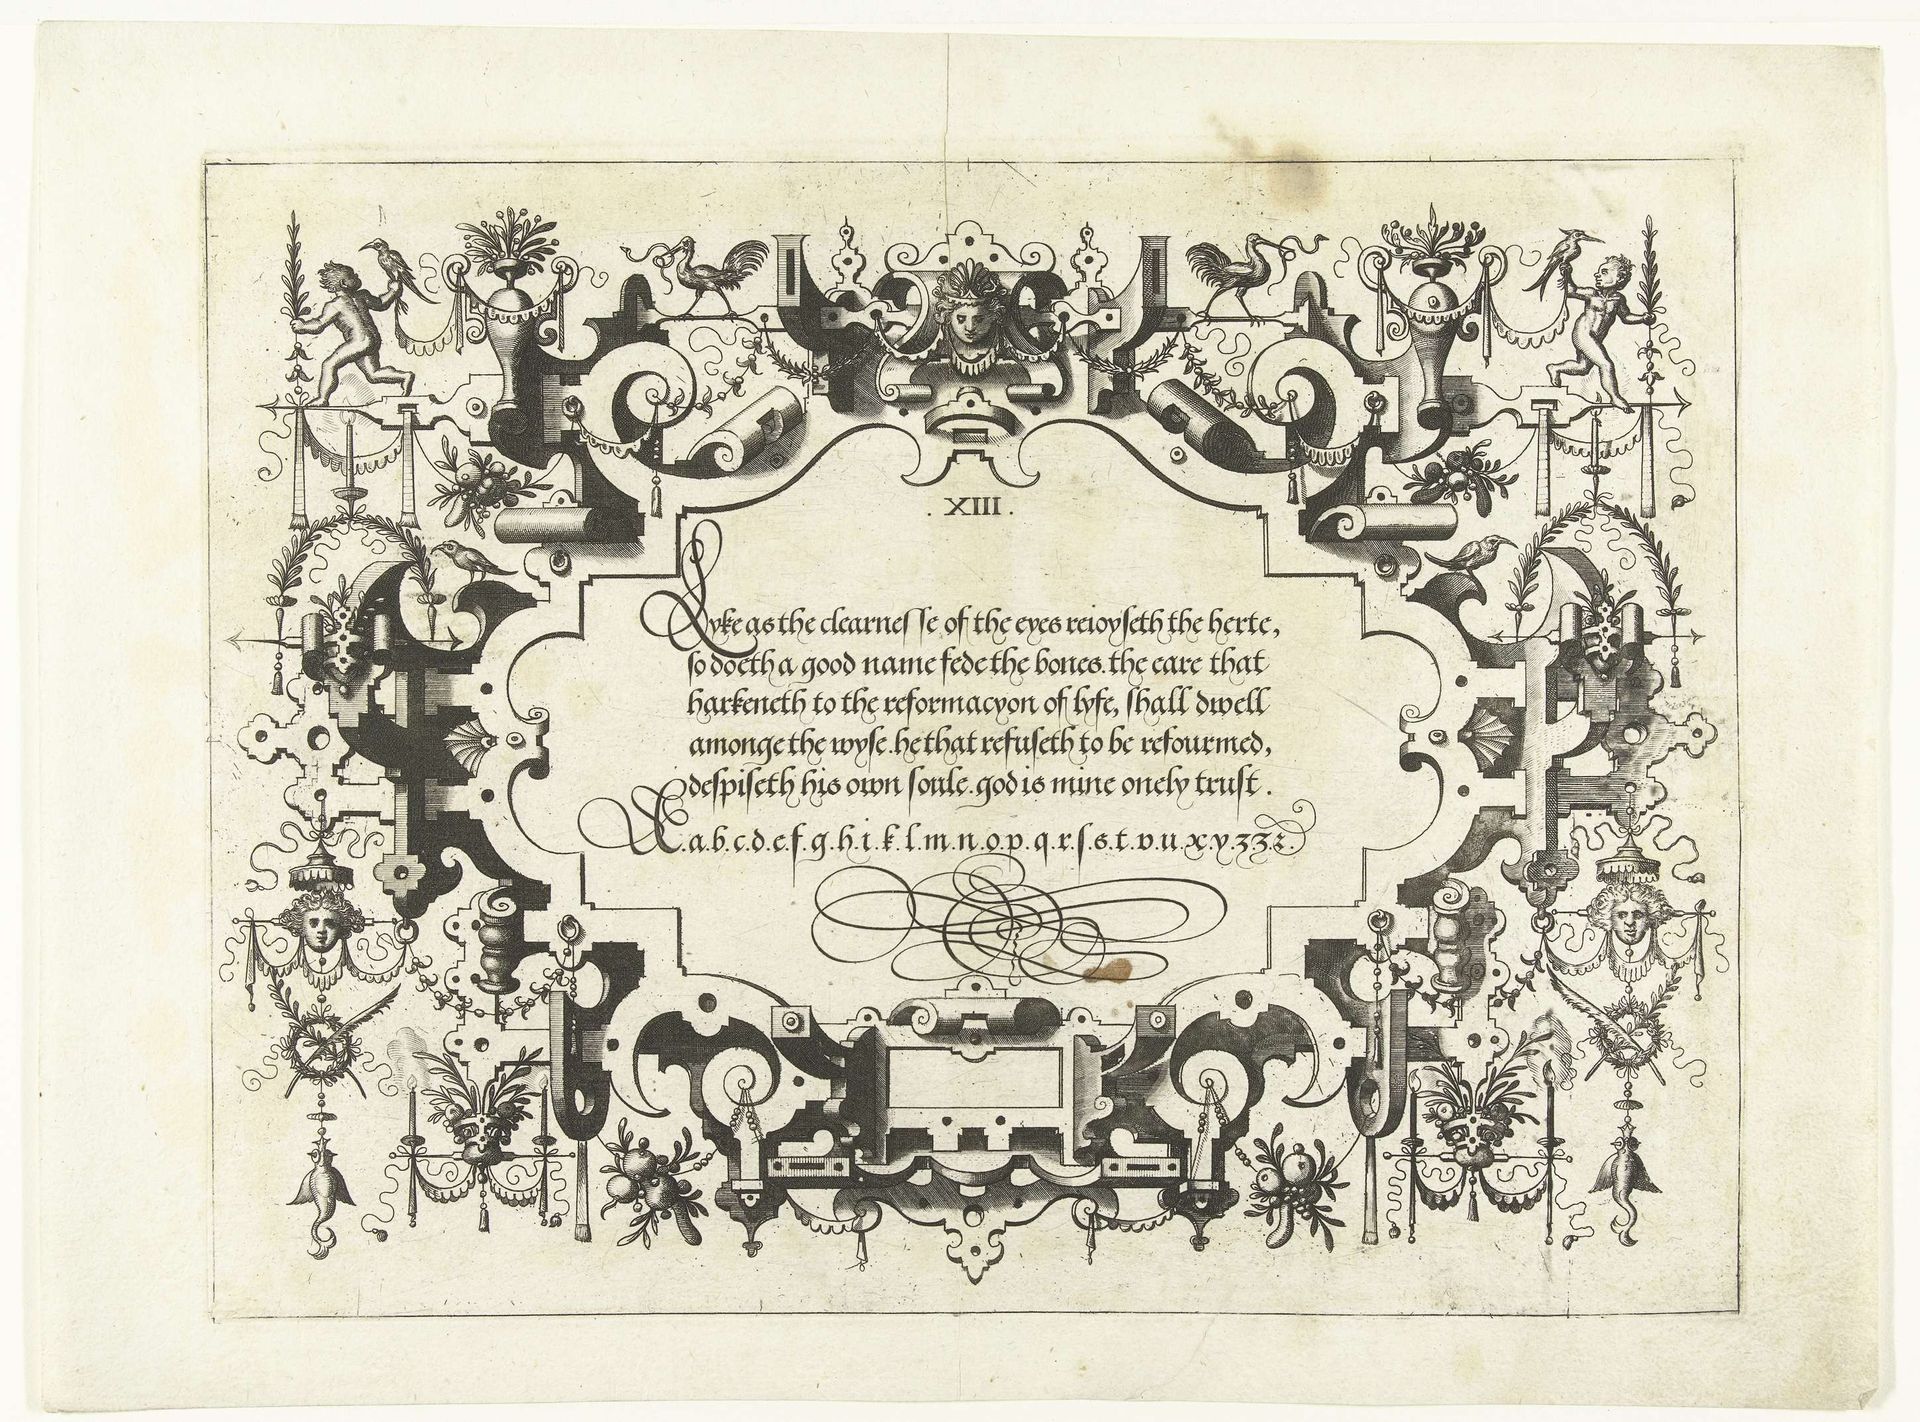 . XIII .
Lyke as the clearnesse of the eyes reioyseth the herte,
so doeth a good name fede the bones. the eare that
harkeneth to the reformacyon of lyfe, shall dwell
amonge the wyse. he that refuseth to be refourmed,
despiseth his own soule. god is mine onely trust.
A.a.b.c.d.e.f.g.h.i.k.l.m.n.o.p.q.r.ſ.s.t.v.u.x.y.z.z.&.